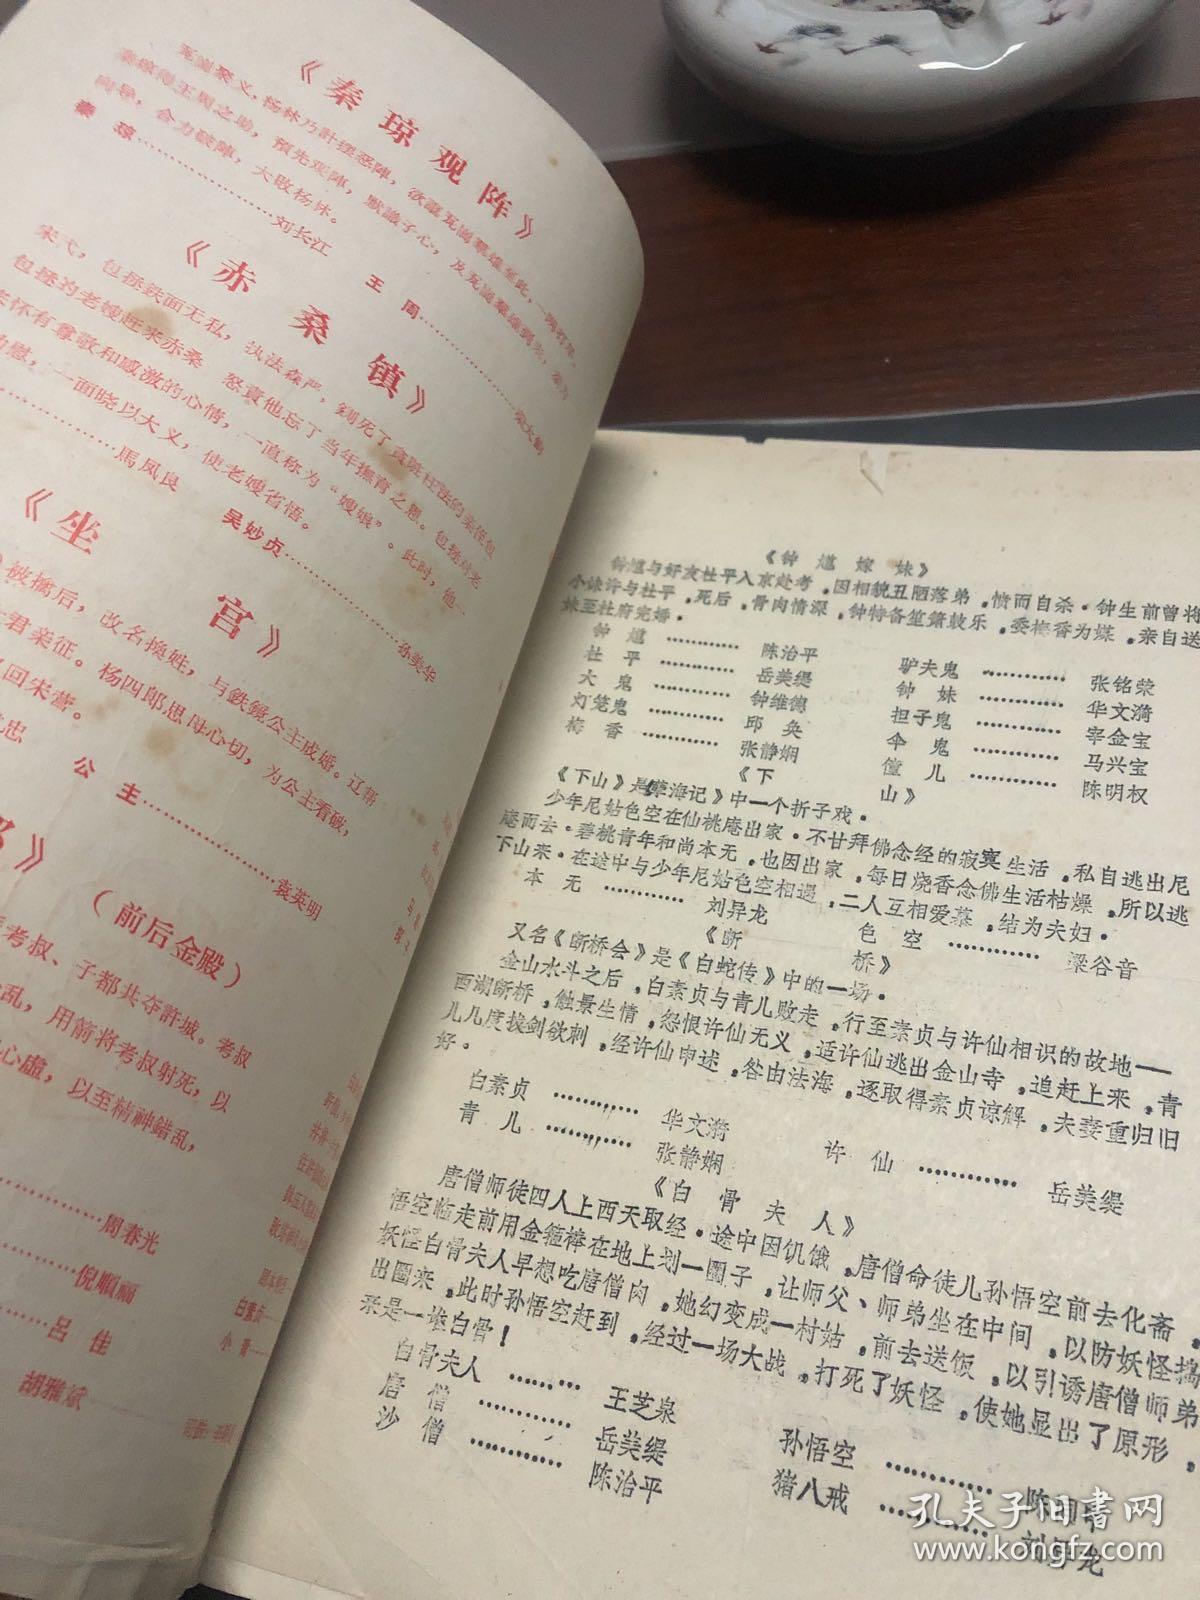 《秦琼观阵》
瓦崗聚义，杨林乃計摆恶陣，欲誑瓦崗羣雄至此，一网打尽。
秦琼得王周之助，預先观陣，默識于心，及瓦崗羣雄到来，秦为
向导，合力破陣，大敗杨林。
秦琼………………刘长江
王周………………
《赤桑镇》
宋代，包拯鉄面无私，执法森严，鍘死了貪賍枉法的亲侄包
包拯的老嫂赶来赤桑 怒責他忘了当年撫育之恩。包拯对老
怀有尊敬和感激的心情，一直称为“嫂娘”。此时，他一
慰，一面晓以大义，使老嫂省悟。
………………馬凤良
吴妙贞………………孙美华
《坐宫》
被擒后，改名換姓，与鉄鏡公主成婚。辽帮
君亲征。杨四郎思母心切，为公主看破，
回宋营。
忠
公主………………袁英明
》
（前后金殿）
考叔、子都共夺許城。考叔
乱，用箭将考叔射死，以
心虛，以至精神錯乱，
………………周春光
………………倪順福
………………呂佳
胡雅斌
《钟馗嫁妹》
钟馗与好友杜平入京赴考，因相貌丑陋落弟，愤而自杀。钟生前曾将
小妹许与杜平，死后，骨肉情深，钟特备笙箫鼓乐，委梅香为媒，亲自送
妹至杜府完婚。
钟馗…………陈治平
驴夫鬼…………张铭荣
杜平…………岳美缇
钟妹…………华文漪
大鬼…………钟维德
担子鬼…………宰金宝
灯笼鬼…………邱奂
伞鬼…………马兴宝
梅香…………张静娴
僮儿…………陈明权
《下山》
《下山》是《孽海记》中一个折子戏。
少年尼姑色空在仙桃庵出家。不甘拜佛念经的寂寞生活，私自逃出尼
庵而去。碧桃青年和尚本无，也因出家，每日烧香念佛生活枯燥，所以逃
下山来。在途中与少年尼姑色空相遇，二人互相爱慕，结为夫妇。
本无…………刘异龙
色空…………梁谷音
《断桥》
又名《断桥会》是《白蛇传》中的一场。
金山水斗之后，白素贞与青儿败走，行至素贞与许仙相识的故地——
西湖断桥，触景生情，怨恨许仙无义，适许仙逃出金山寺，追赶上来，青
儿几度拔剑欲刺，经许仙申述，咎由法海，逐取得素贞谅解，夫妻重归旧
好。
白素贞…………华文漪
青儿…………张静娴
许仙…………岳美缇
《白骨夫人》
唐僧师徒四人上西天取经。途中因饥饿，唐僧命徒儿孙悟空前去化斋，
悟空临走前用金箍棒在地上划一圈子，让师父、师弟坐在中间，以防妖怪捣
妖怪白骨夫人早想吃唐僧肉，她幻变成一村姑，前去送饭，以引诱唐僧师弟
出圈来，此时孙悟空赶到，经过一场大战，打死了妖怪，使她显出了原形，
来是一堆白骨！
白骨夫人…………王芝泉
唐僧…………岳美缇
孙悟空…………
沙僧…………陈治平
猪八戒…………刘异龙
孔夫子旧书网
www.kongfz.com